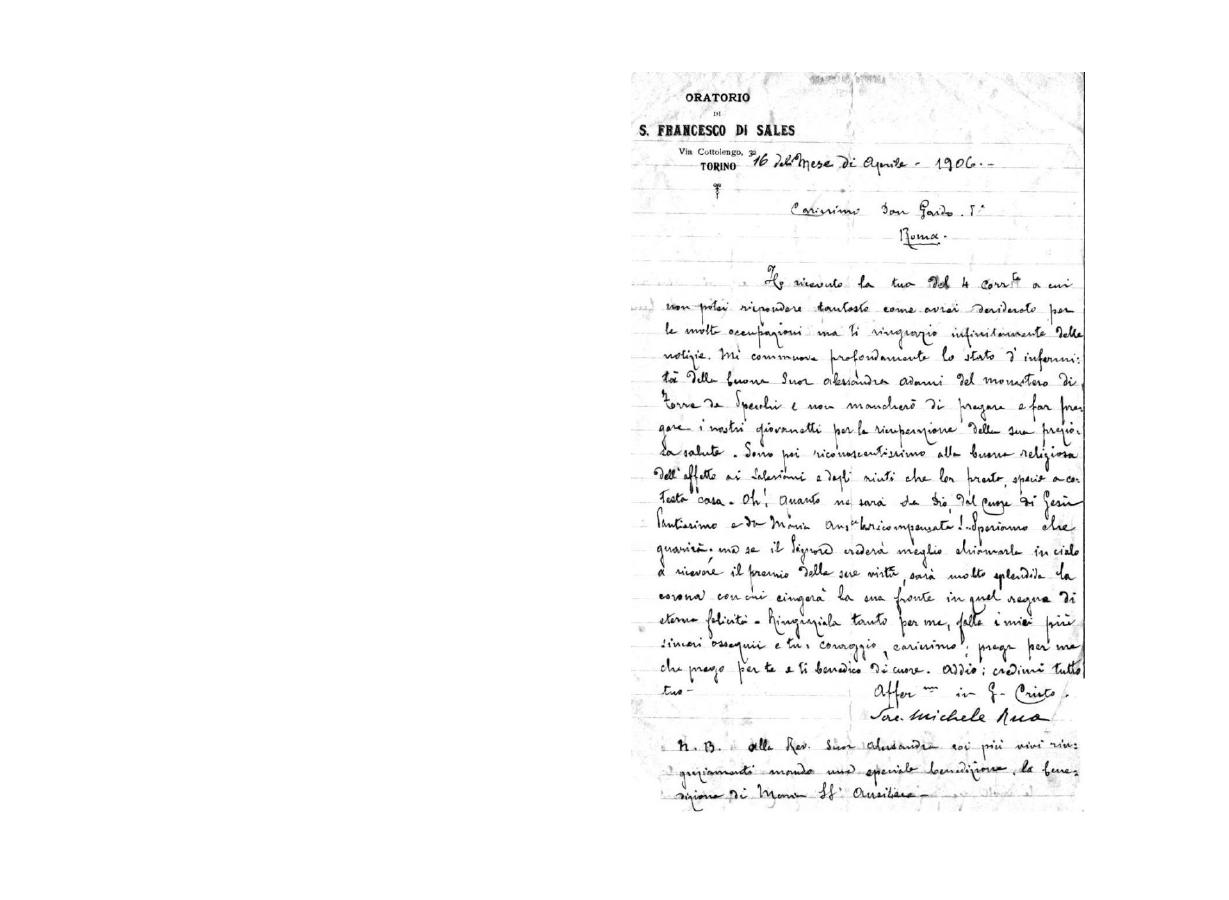 ORATORIO
DI
S. FRANCESCO DI SALES
Via Cottolengo, 32
TORINO
16 del Mese di Aprile - 1906.-
Carissimo Don
Roma.
Ho ricevuto la tua del 4 corrte a cui
non potei rispondere tantosto come avrei desiderato per
le molte occupazioni ma ti ringrazio infinitamente delle
notizie. Mi commuove profondamente lo stato d'infermi:
tà della buona Suor Alessandra Adami del monastero di
Torre de Specchi e non mancherò di pregare e far pre-
gare i nostri giovanetti per la ricuperazione della sua prezio:
sa salute. Sono poi riconoscentissimo alla buona religiosa
dell'affetto ai Salesiani e degli aiuti che lor presta, specie a co-
testa casa. Oh! Quanto ne sarà da Dio, dal Cuore di Gesù
Santissimo e da Maria ricompensata! Speriamo che
guarirà. ma se il Signore crederà meglio chiamarla in cielo
a ricevere il premio delle sue virtù, sarà molto splendida la
corona con cui cingerà la sua fronte in quel regno di
eterna felicità - Ringraziala tanto per me, falle i miei più
sinceri ossequii e tu, coraggio, carissimo; prega per me
che prego per te e ti benedico di cuore. Addio; credimi tutto
tuo -
Affez mo in G. Cristo.
Sac. Michele Rua
N. B. Alla Rev. Suor Alessandra coi più vivi rin:
graziamenti mando una speciale benedizione, la bene-
dizione di Maria SS. Ausiliare -